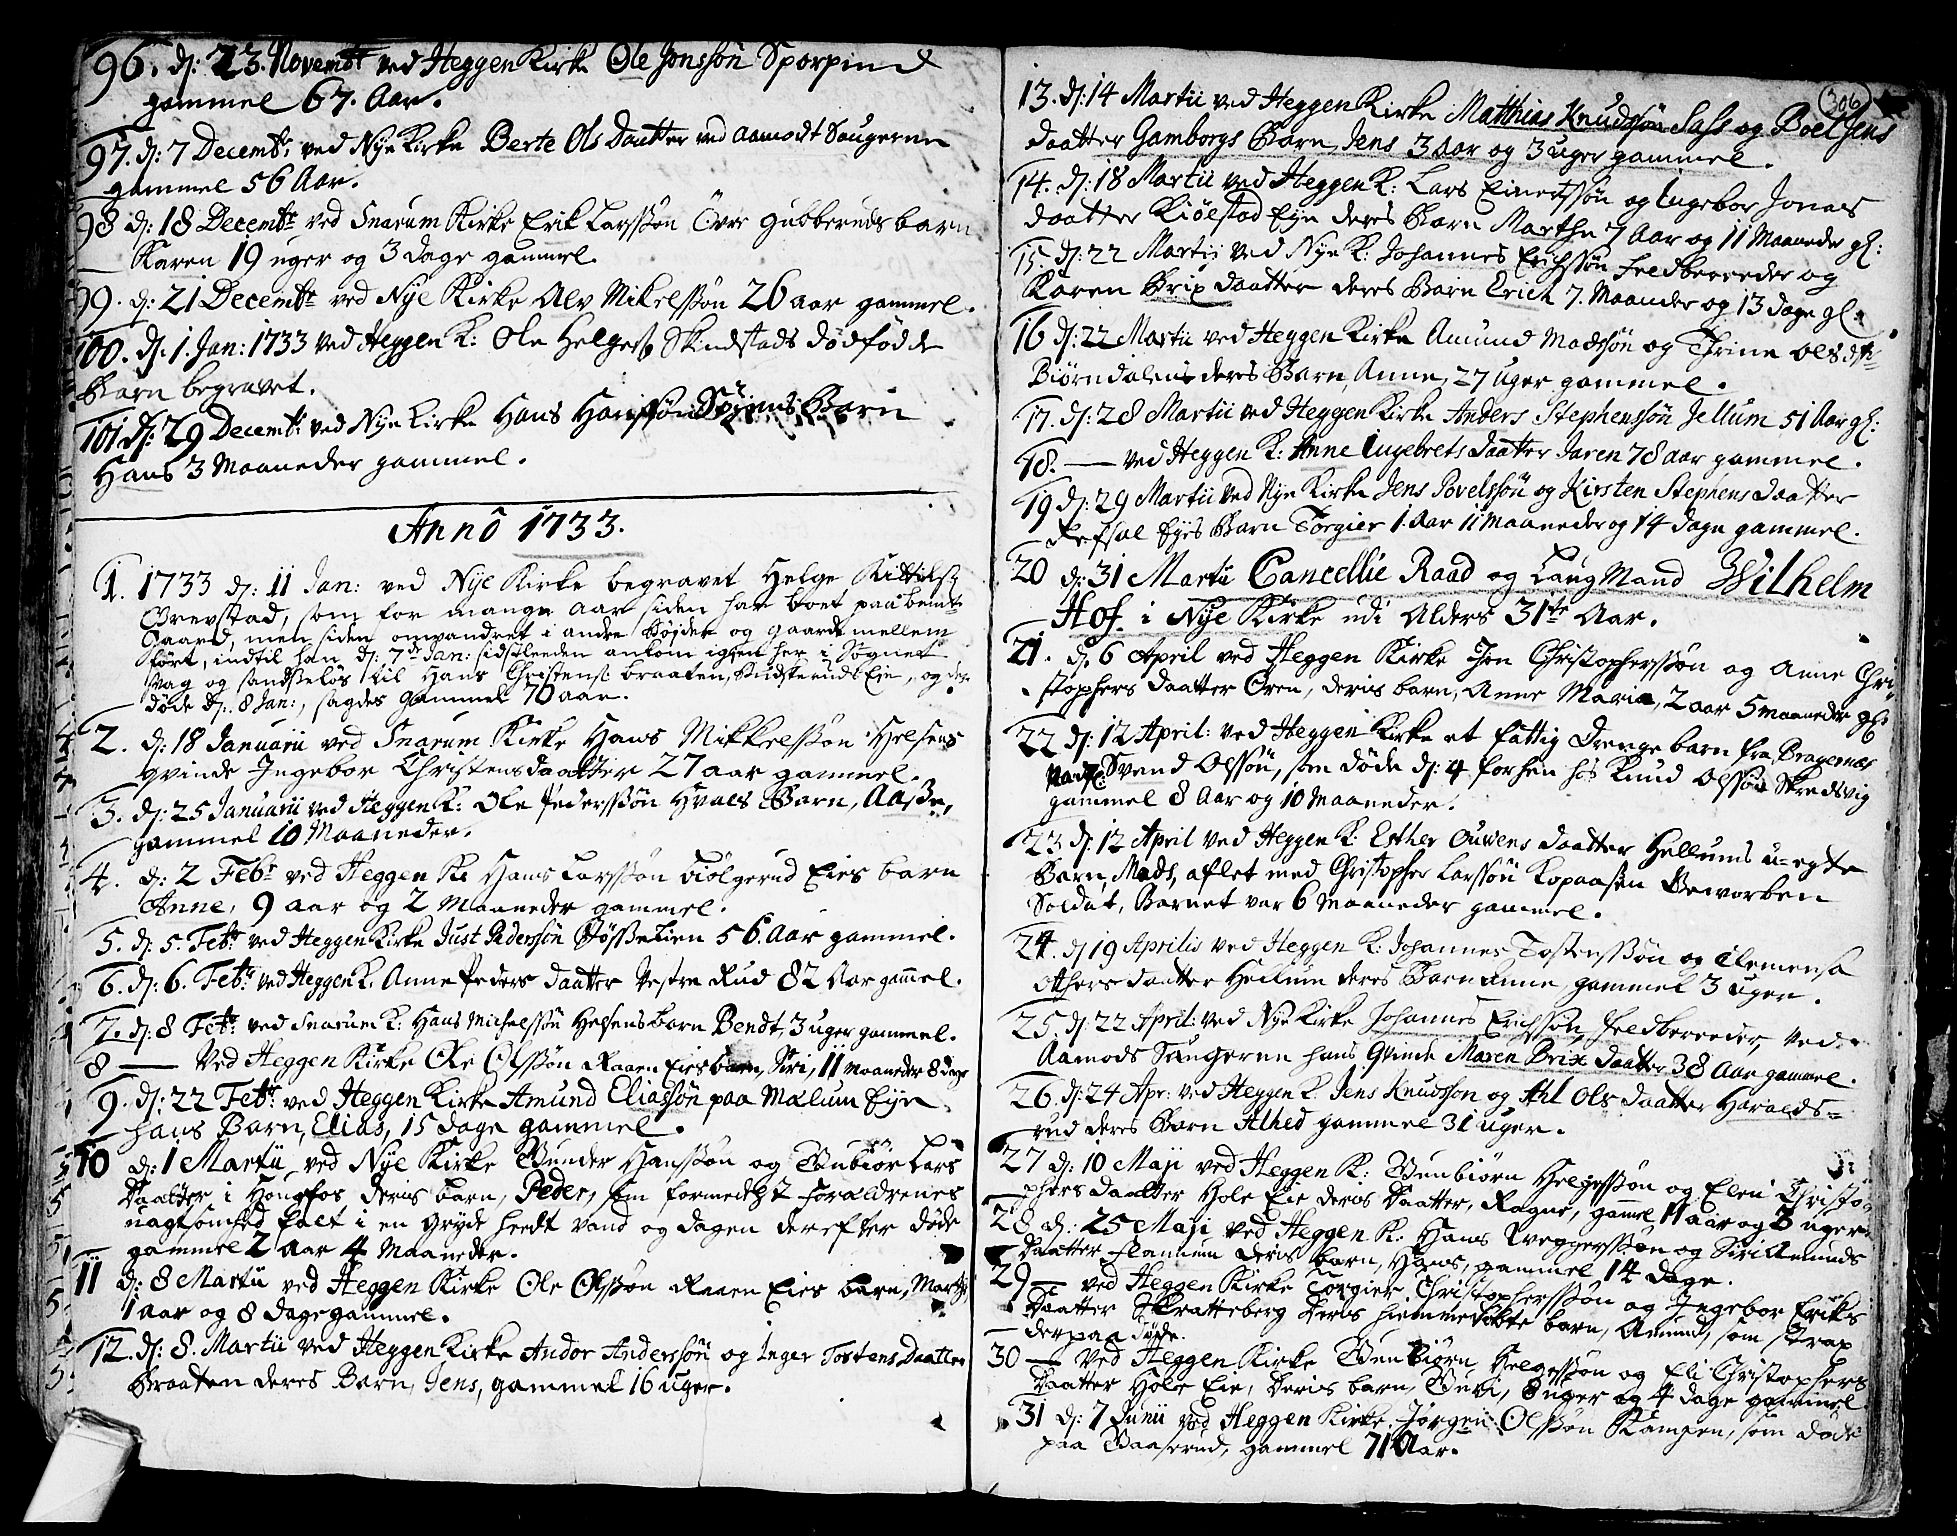 96. dj: 23. Novembr ved Heggen Kirke Ole Jonssøn Sporpind
gammel 67. Aar.
97. dj: 7 Decembr: ved Nye Kirke Berte Ols Daatter ved Aamodt Saugerne
gammel 56 Aar.
98 dj: 18 Decembr ved Snarum Kirke Erik Larssøn Övre Gubberuds barn
Karen 19 uger og 3 dage gammel.
99. dj: 21 Decembr ved Nye Kirke Alv Mikelssøn 26 aar gammel.
100. dj. 1. Jan: 1733 ved Heggen K: Ole Helges. Skindstads dødfødde
Barn begravet.
101 dj: 29 Decembr: ved Nye Kirke Hans Hanssøn Barn
Hans 3 Maaneder gammel.
Annô 1733.
1. 1733 dj: 11 Jan: ved Nye Kirke begravet Helge Kittils.
som for mange aar siden har boet paa bemte
Gaard, men siden omvandret i andre Bøjder og gaarde mellem
ført, indtil han dj: 7de Jan: sidstleeden ankom igien her i Sognet
svag og sandseløs til Hans Christens: braaten, Eie, og der
døde dj. 8 Jan:, sagdes gammel 70 aar.
2. dj: 18 Januarii ved Snarum Kirke Hans Mikkelssøn Helsens
qvinde Ingebor Christensdaatter 27 aar gammel.
3. dj: 25 Januarii ved Heggen K: Ole Pederssøn Hvals Barn, Aasse,
gammel 10 Maaneder.
4. dj: 2 Febr ved Heggen K: Hans Larssøn Eies barn
Anne, 9 aar og 2 Maaneder gammel.
5. dj: 5. Febr: ved Heggen Kirke Just Pederssøn 56. Aar gammel.
6. dj: 6. Febr: ved Heggen K. Anne Peders daatter Vestre Rud 82 Aar gamel.
7. dj: 8 Febr: ved Snarum K: Hans Michelssøn Helsens barn Bendt, 3 uger gammel.
8 — Ved Heggen Kirke Ole Olssøn Raaen Eies barn, Siri, 11 maaneder 8 dage
9. dj: 22 Febr: ved Heggen Kirke Amund Eliassøn paa Mælum Eje
hans Barn, Elias, 15 dage gammel.
10 dj: 1 Martii ved Nye Kirke Gunder Hanssøn og Gunbiør Lars
daatter i Hougfos deris barn, Peder, som formedelst foraldrenes
uagtsomhed falt i en Gryde heedt vand og dagen derefter døde
gammel 2 Aar 4 Maaneder.
11 dj: 8 Martii ved Heggen Kirke Ole Olssøn Raaen Eies barn, Marthe
1 aar og 8 dage gammel.
12. dj: 8. Martii ved Heggen Kirke Andor Anderssøn og Inger Tostens Daatter
Braaten deres Barn, Jens, gammel 16 uger.
306
13. dj: 14 Martii ved Heggen Kirke Matthias Knudssøn Sass og Boel Jens
daatter Gamborgs Barn, Jens 3 Aar og 3 uger gammel.
14. dj: 18 Martii ved Heggen K: Lars Einertssøn og Ingebor Jonæs
daatter Kiølstad Eje deres Barn Marthe 7 Aar og 11 Maaneder gl:
15 dj: 22 Martii ved Nye K: Johannes Erichssøn Feldbereeder og
Karen Brix daatter deres Barn Erich 7. Maaneder og 13 dage gl:
16 dj: 22 Martii ved Heggen Kirke Amund Madssøn og Thrine Ols dtr
Biørndalens deres Barn Anne, 27 uger gammel.
17. dj: 28 Martii ved Heggen Kirke Anders Stephenssøn Jellum 51 Aar gl:
18. — ved Heggen K: Anne Ingebrets daatter Jaren 78 aar gammel.
19 dj: 29 Martii ved Nye Kirke Jens Povelssøn og Kirsten Stephens daatter
Refsal Ejes Barn Torgier 1. Aar 11 maaneder og 14 dage gammel.
20 dj: 31 Martii Cancellie Raad og Laug Mand Wilhelm
Hof. i Nye Kirke udi Alders 31te Aar.
21. dj. 6 April ved Heggen Kirke Jon Christopherssøn og Anne Chri
stophers daatter Øren, deris barn, Anne Maria, 2 aar 5 maaneder gl:
22 dj: 12 April: ved Heggen Kirke et fattig Drenge barn fra Bragernæs
Svend Olssøn, som døde dj: 4 forhen hos Knud Olssøn Skredsvig
gammel 8 Aar og 10 Maaneder.
23 dj: 12 April ved Heggen K: Esther Ouwens daatter Hellums u-egte
Barn, Mads, aflet med Christopher Larssøn Kopaasen Geworben
Soldat, Barnet var 6 Maaneder gammel.
24. dj 19 Aprilis ved Heggen K: Johannes Tostenssøn og Clemensa
Others daatter Hellum deres Barn Anne gammel 3 uger.
25. dj: 22 April: ved Nye Kirke Johannes Erichssøn, Feldbereeder, ved
Aamods Saugerne hans Qvinde Maren Brix daatter 38 Aar gammel.
26. dj: 24 Apr: ved Heggen K. Jens Knudsson og Ahl Ols daatter Haralds-
rud deres Barn Alhed gammel 31 uger.
27 dj: 10 Maji ved Heggen K: Gunbiørn Helgessøn og Eleu Christo-
phers daatter Hole Eie deres daatter, Ragne, gamel 11 aar og 8 uger
28 dj: 25 Maji ved Heggen K: Hans Treggerssøn og Siri Amunds
daatter Flannum deris barn, Hans, gammel 14 dage.
29 — ved Heggen Kirke Torgier Christopherssøn og Ingebor Eriks
daatter Skratteberg deris hiemmedøbte barn, Amund, som strax
derpaa døde.
30 — Ved Heggen Kirke Gunbiørn Helgessøn og Eli Christophers
daatter Hole Eie, deris barn, Guri, 8 uger og 4 dage gammel
31 dj: 7 Junii ved Heggen Kirke Jørgen Olssøn Kampen, som døde
paa Gaaserud, gammel 71 Aar.